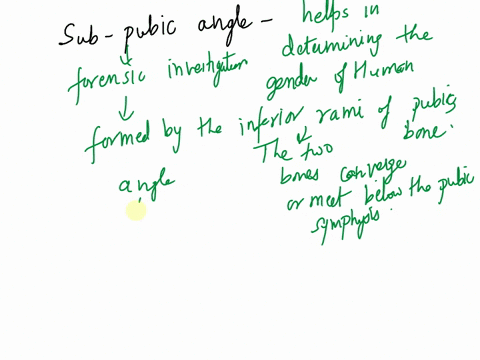 Sub-pubic angle - helps in
determining the
gender of Human
forensic investigation
formed by the inferior rami of pubic
bone.
The two
bones converge
or meet below the pubic
symphysis.
angle